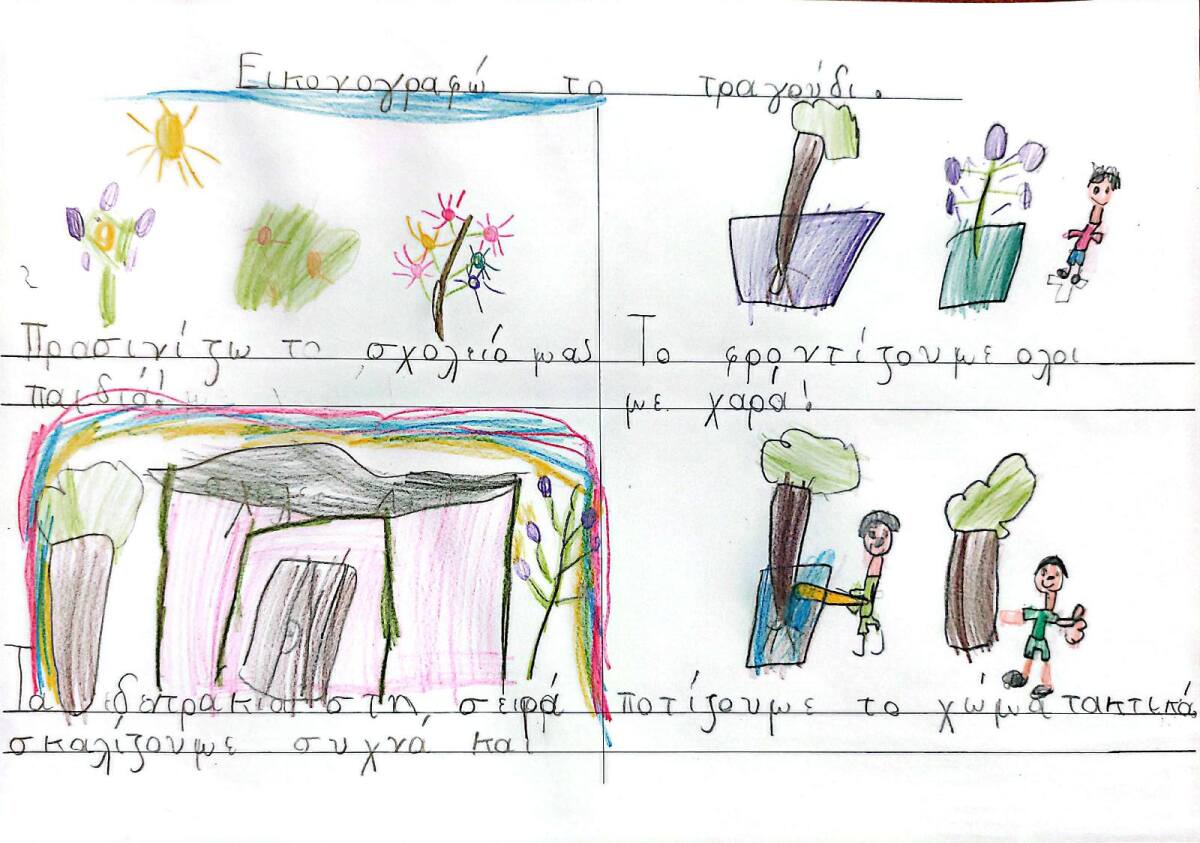 Εικονογραφώ το τραγούδι.
Πρασινίζω το σχολείο μας
παιδιά!
Το φροντίζουμε ολοι
με χαρά!
Τα δεντρακια στη σειρά
σκαλίζουμε συχνά και
ποτίζουμε το χώμα τακτικά